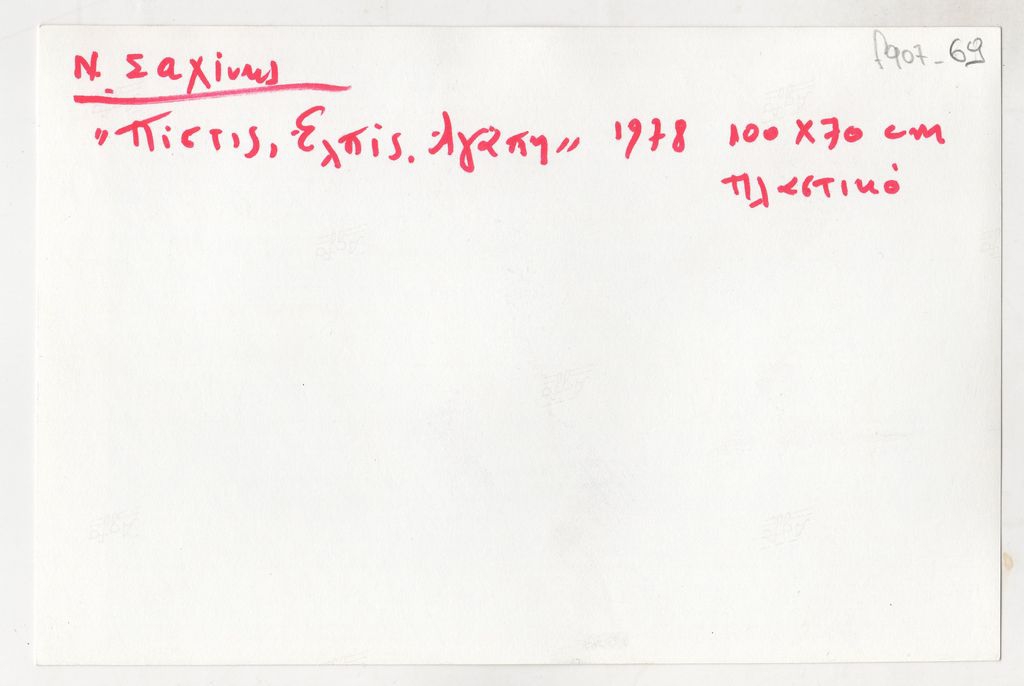 P907-69
Ν. Σαχίνης
"Πίστις, Ἐλπίς, Ἀγάπη" 1978 100 X 70 cm
πλαστικό